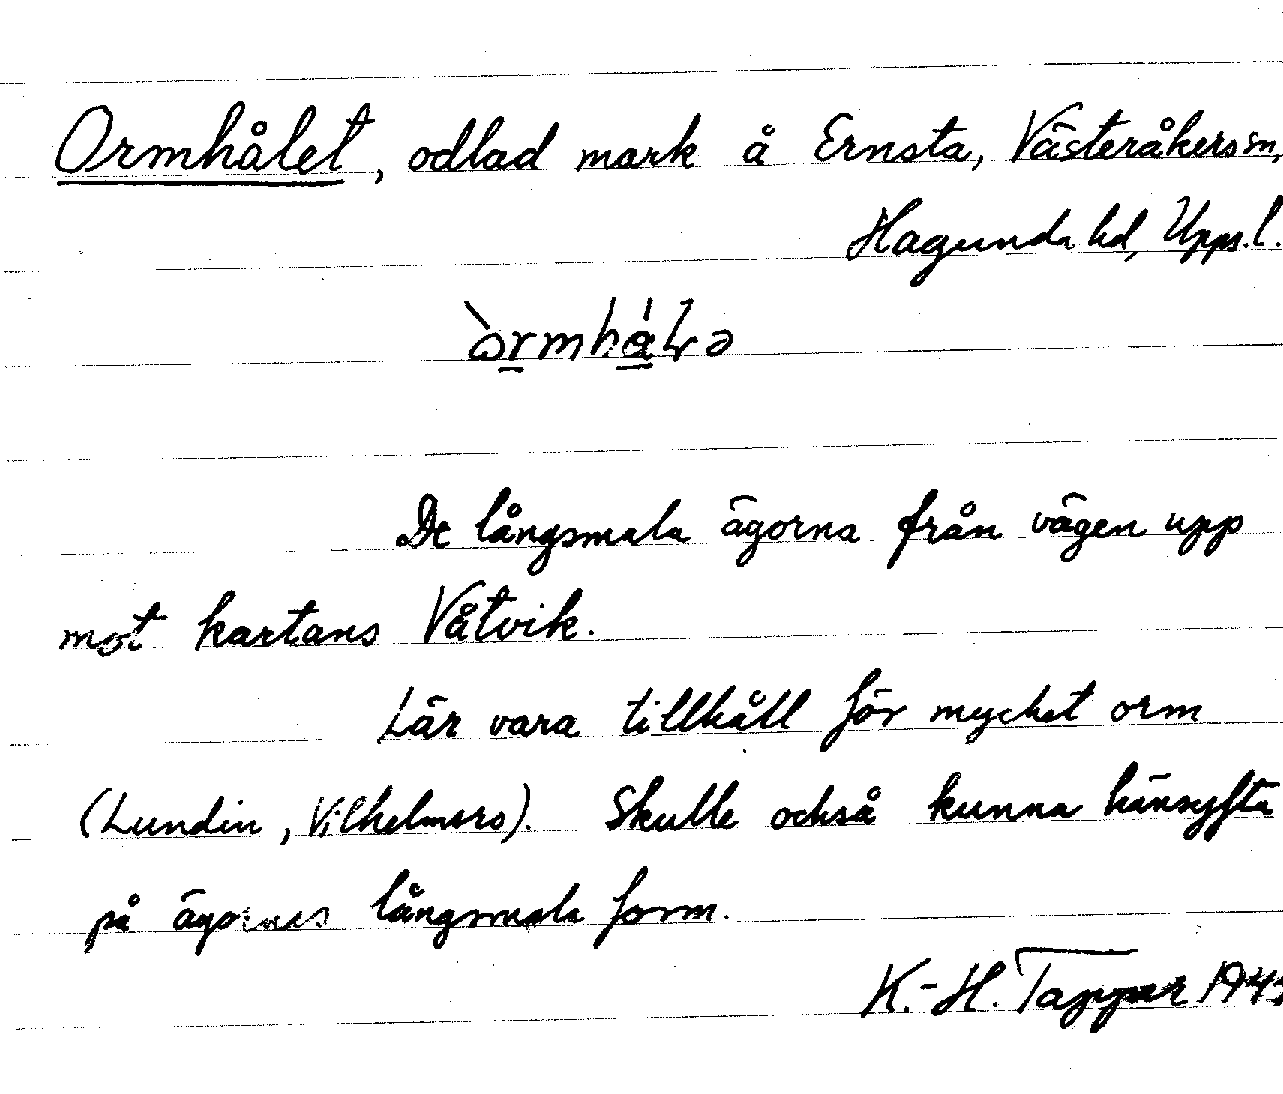 Ormhålet, odlad mark å Ernsta, Västeråkers sn,
Hagunda hd, Upps. l.
De långsmala ägorna från vägen upp
mot kartans Våtvik.
Lär vara tillhåll för mycket orm
(Lundin, Vilhelmsro). Skulle också kunna hänsyfta
på ägornas långsmala form.
K.-H. Tapper